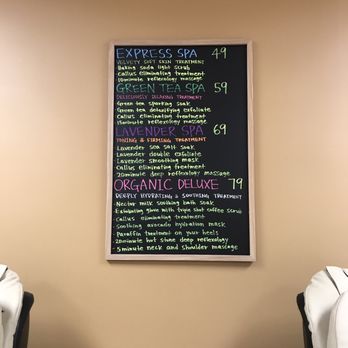 EXPRESS SPA 49
VELVETY SOFT SKIN TREATMENT
· Baking soda light scrub
· Callus eliminating treatment
· 10minute reflexology massage
GREEN TEA SPA 59
DELICIOUSLY RELAXING TREATMENT
Green tea sparking soak
Green tea detoxifying exfoliate
Callus eliminating treatment
15minute reflexology massage
LAVENDER SPA 69
TONING & FIRMING TREATMENT
Lavender sea salt soak
Lavender double exfoliate
Lavender smoothing mask
Callus eliminating treatment
20minute deep reflexology massage
ORGANIC DELUXE 79
DEEPLY HYDRATING & SOOTHING TREATMENT
· Nectar milk soothing bath soak
· Exfoliating glow with triple shot coffee scrub
· Callus eliminating treatment
· Soothing avocado hydration mask
· Paraffin treatment on your heels
· 20minute hot stone deep reflexology
· 5minute neck and shoulder massage